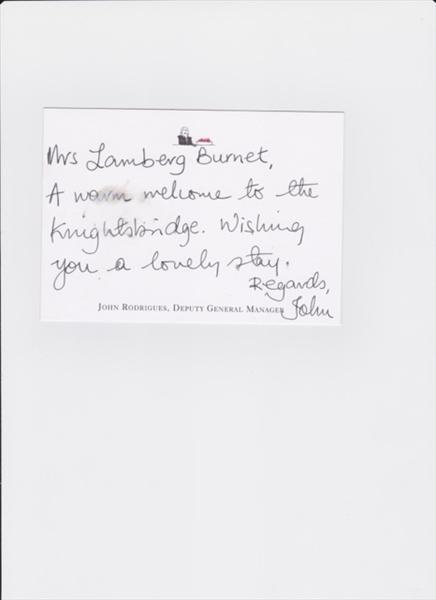 Mrs Lamberg Burnet,
A warm welcome to the
Knightsbridge. Wishing
you a lovely stay.
Regards,
John
JOHN RODRIGUES, DEPUTY GENERAL MANAGER